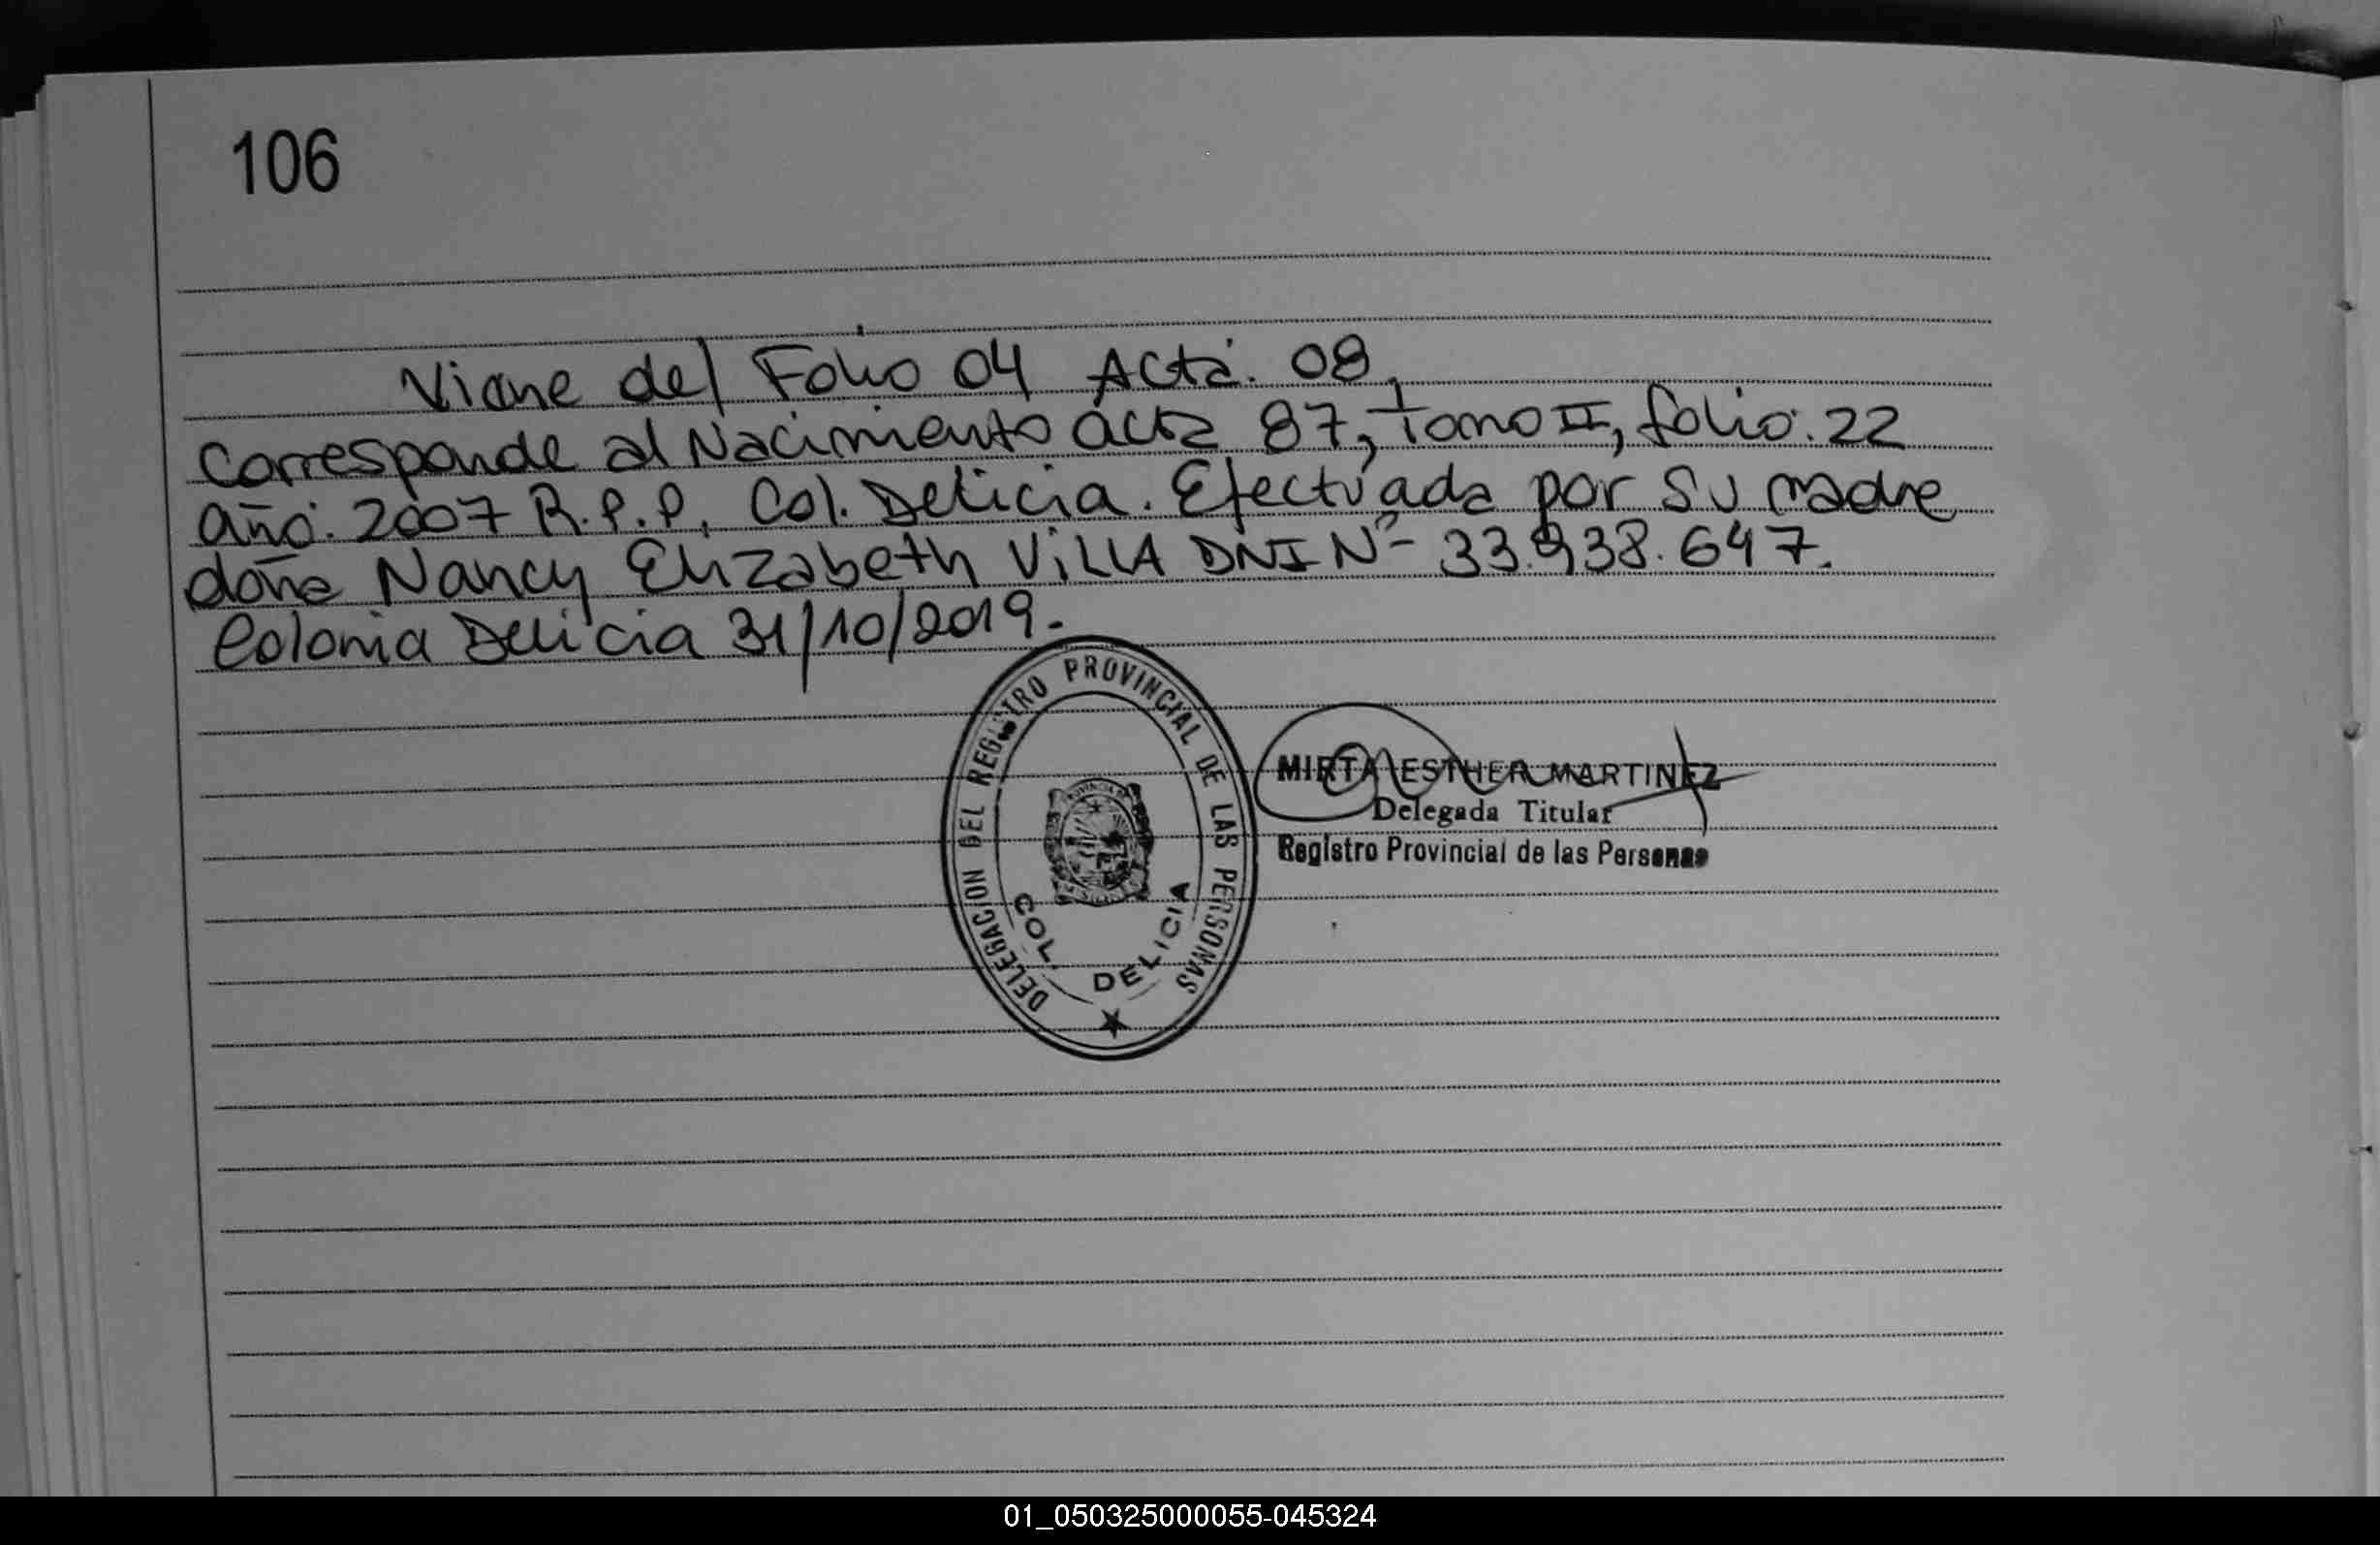 106
Viene del Folio 04 Acta. 08,
Corresponde al Nacimiento acta 87, Tomo II, folio: 22
año: 2007 R.P.P. Col. Delicia. Efectuada por su madre
doña Nancy Elizabeth VILLA DNI Nº 33.938.647.
Colonia Delicia 31/10/2019.-
DELEGACION DEL REGISTRO PROVINCIAL DE LAS PERSONAS
COL. DELICIA
MIRTA ESTHER MARTINEZ
Delegada Titular
Registro Provincial de las Personas
01_050325000055-045324